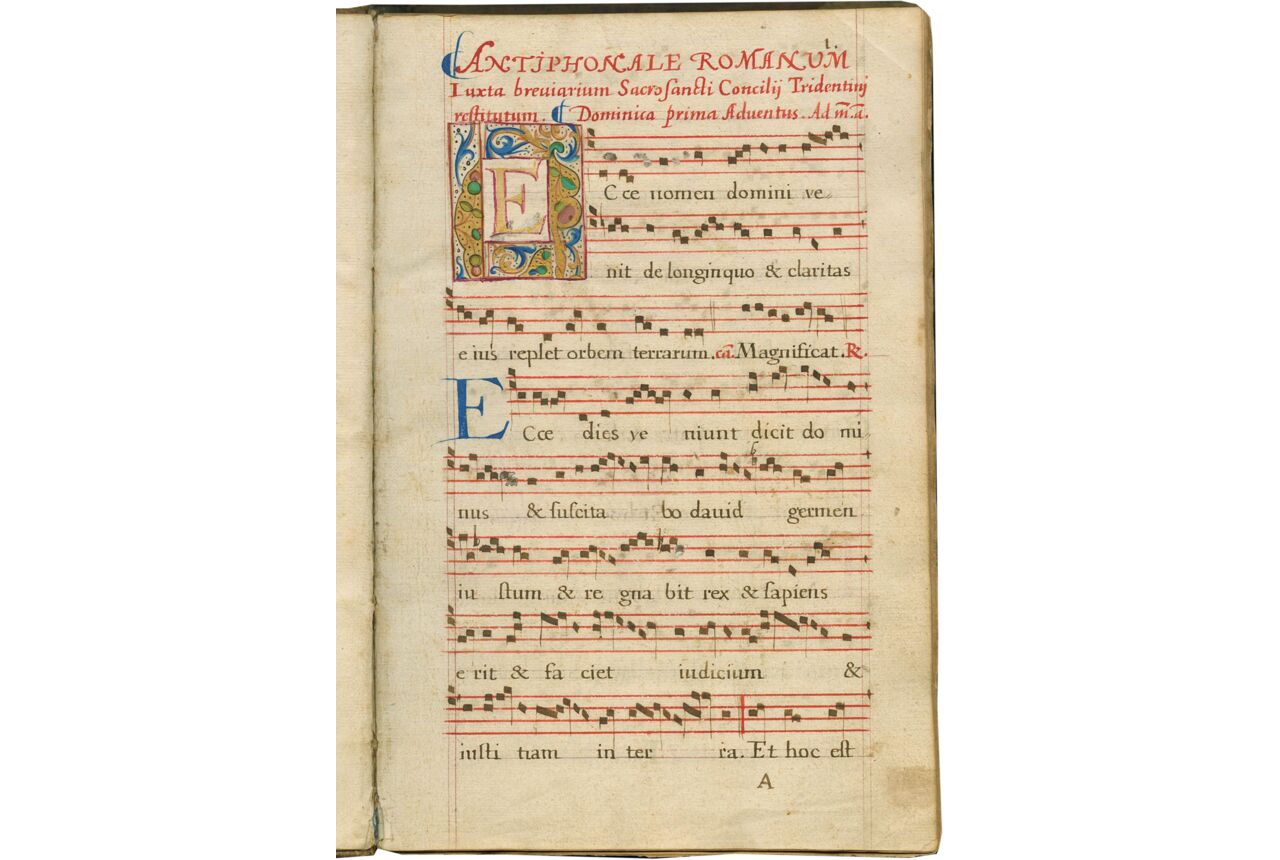 1.
ANTIPHONALE ROMANUM
Iuxta breuiarium Sacrosancti Concilij Tridentinj
restitutum. Dominica prima Aduentus. Ad m̃.a.
ECce nomen domini ve
nit de longinquo & claritas
eius replet orbem terrarum. ca. Magnificat. ℟.
ECce dies ve niunt dicit do mi
nus & suscita bo dauid germen
iu stum & re gna bit rex & sapiens
erit & fa ciet iudicium &
iusti tiam in ter ra. Et hoc est
A